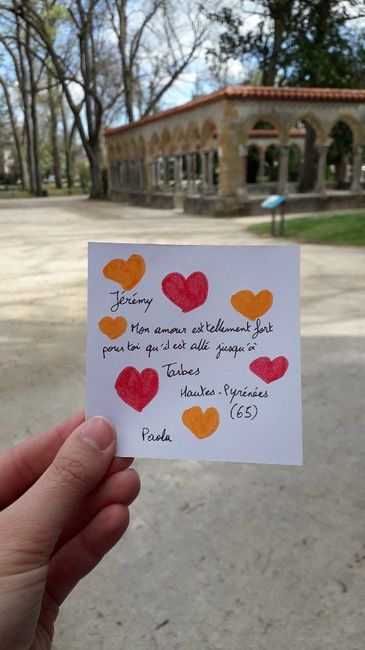 Jérémy
Mon amour est tellement fort
pour toi qu'il est allé jusqu'à
Tarbes
Hautes-Pyrénées
(65)
Paola